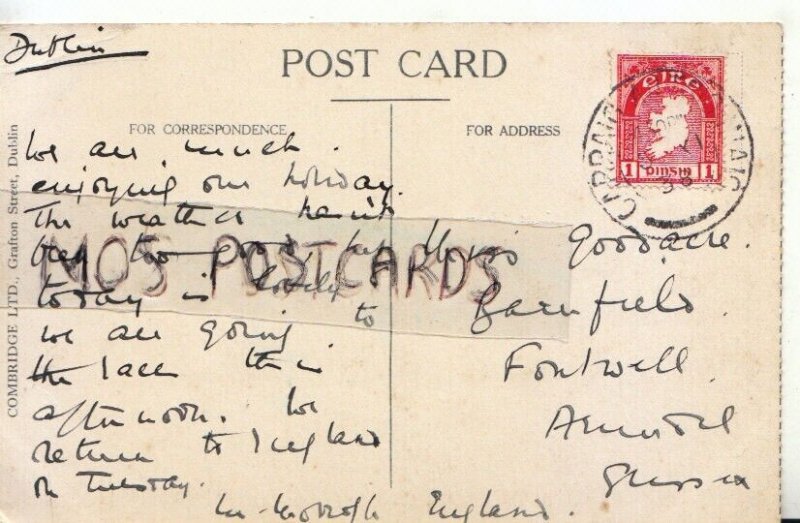 Dublin
POST CARD
FOR CORRESPONDENCE
FOR ADDRESS
COMBRIDGE LTD., Grafton Street, Dublin
éire
1 PINSIN 1
We are much
enjoying our holiday.
The weather hasn't
been too good but
today is lovely
we are going to
the races this
afternoon. We
return to England
on Tuesday.
MOS POSTCARDS
Goodacre.
Barnfield.
Fontwell.
Arundel
Sussex
England.